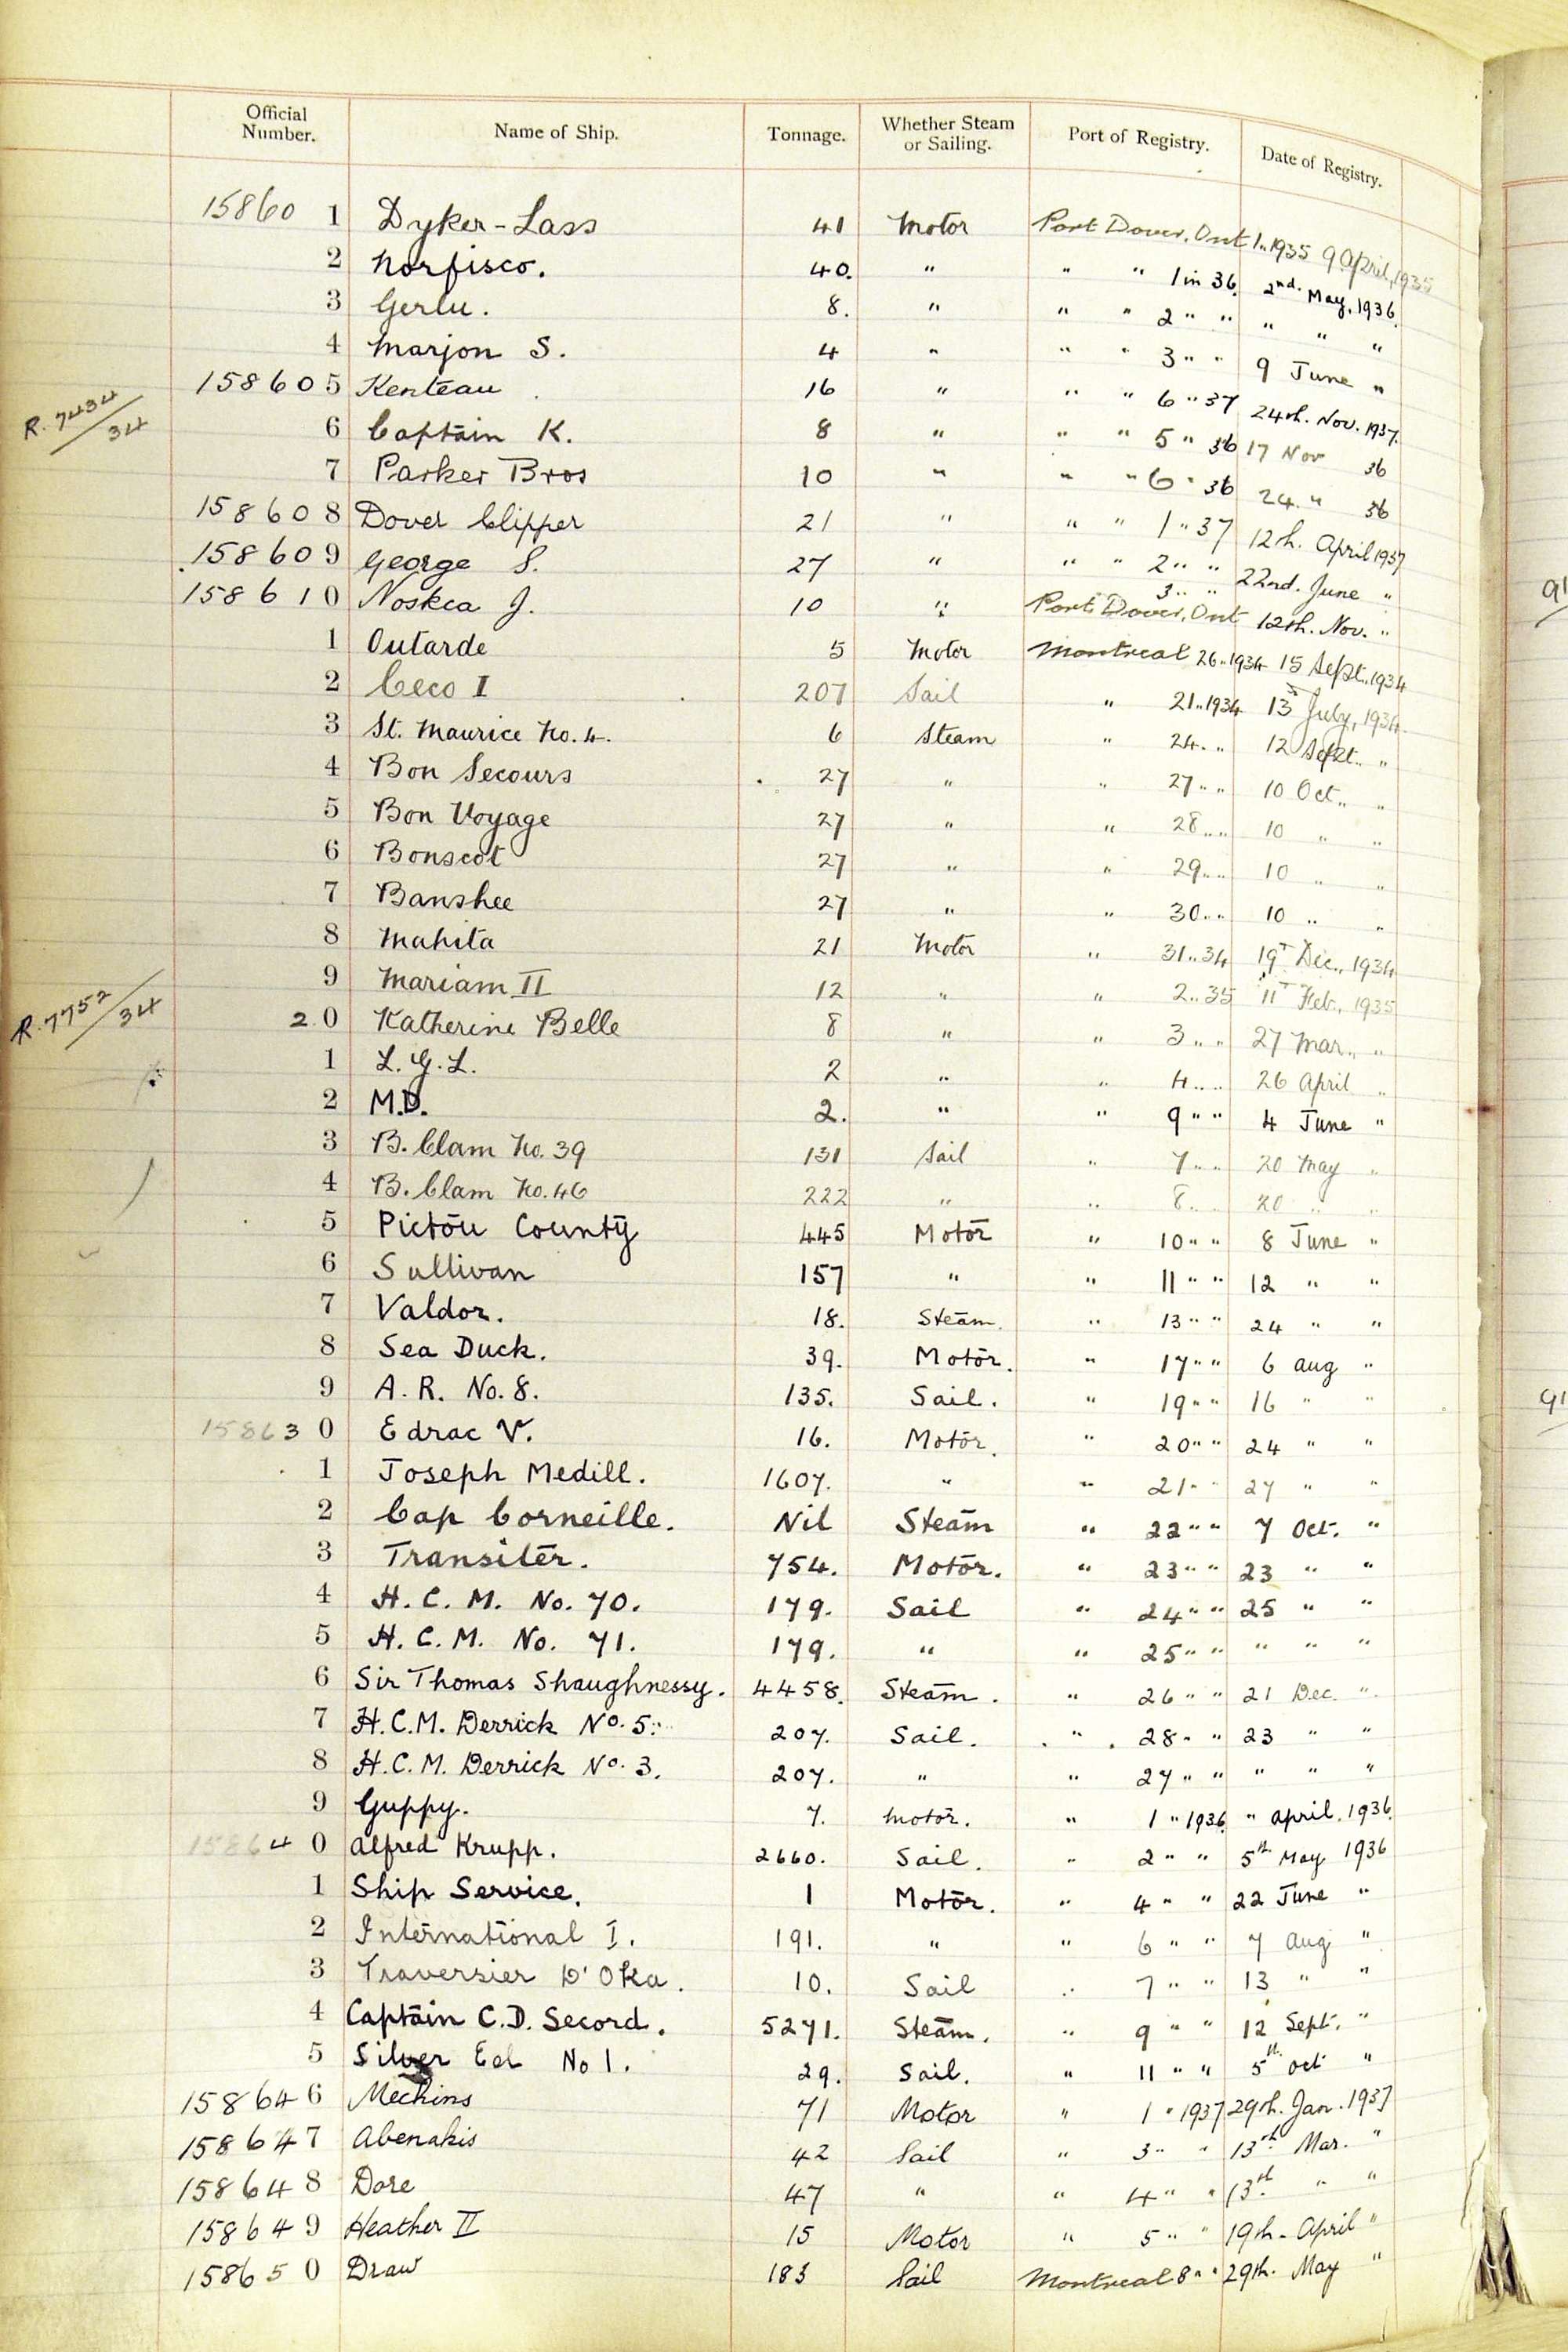 Official Number. Name of Ship. Tonnage. Whether Steam or Sailing. Port of Registry. Date of Registry.
15860 1 Dyker-Lass 41 Motor Port Dover, Ont 1..1935 9 April, 1935
2 Norfisco. 40. " " " 1 in 36. 2nd. May, 1936.
3 Gerlu. 8. " " " 2 " " " " "
4 Marjon S. 4 " " " 3 " " 9 June "
R. 7434/34
158605 Kenteau 16 " " " 6 " 37 24th. Nov. 1937.
6 Captain K. 8 " " " 5 " 36 17 Nov 36
7 Parker Bros 10 " " " 6 " 36 24. " 36
158608 Dover Clipper 21 " " " 1 " 37 12th. April 1937
158609 George S. 27 " " " 2 " " 22nd. June "
158610 Noskea J. 10 " Port Dover, Ont 3 " " 12th. Nov. "
1 Outarde 5 Motor Montreal 26..1934 15 Sept., 1934
2 Ceco I 207 Sail " 21..1934 13 July, 1934.
3 St. Maurice No. 4. 6 Steam " 24. " 12 Sept. "
4 Bon Secours 27 " " 27 " " 10 Oct., "
5 Bon Voyage 27 " " 28 " " 10 " "
6 Bonscot 27 " " 29 " " 10 " "
7 Banshee 27 " " 30 " " 10 " "
8 Mahita 21 Motor " 31..34 19T Dec., 1934
9 Mariam II 12 " " 2..35 11T Feb., 1935
R. 7752/34
20 Katherine Belle 8 " " 3 " " 27 Mar., "
1 L. G. L. 2 " " 4 " " 26 April "
2 M.D. 2. " " 9 " " 4 June "
3 B. Clam No. 39 131 Sail " 7 " " 20 May "
4 B. Clam No. 46 222 " " 8 " " 20 " "
5 Pictou County 445 Motor " 10 " " 8 June "
6 Sullivan 157 " " 11 " " 12 " "
7 Valdor. 18. Steam. " 13 " " 24 " "
8 Sea Duck. 39. Motor. " 17 " " 6 Aug "
9 A. R. No. 8. 135. Sail. " 19 " " 16 " "
158630 Edrac V. 16. Motor. " 20 " " 24 " "
1 Joseph Medill. 1607. " " 21 " " 27 " "
2 Cap Corneille. Nil Steam " 22 " " 7 Oct. "
3 Transiter. 754. Motor. " 23 " " 23 " "
4 H. C. M. No. 70. 179. Sail " 24 " " 25 " "
5 H. C. M. No. 71. 179. " " 25 " " " " "
6 Sir Thomas Shaughnessy. 4458. Steam. " 26 " " 21 Dec. "
7 H. C. M. Derrick No. 5. 207. Sail. " 28 " " 23 " "
8 H. C. M. Derrick No. 3. 207. " " 27 " " " " "
9 Guppy. 7. Motor. " 1 " 1936. " April. 1936.
158640 Alfred Krupp. 2660. Sail. " 2 " " 5th May 1936
1 Ship Service. 1 Motor. " 4 " " 22 June "
2 International I. 191. " " 6 " " 7 Aug "
3 Traversier D'Oka. 10. Sail " 7 " " 13 " "
4 Captain C. D. Secord. 5271. Steam. " 9 " " 12 Sept. "
5 Silver Eel No 1. 29. Sail. " 11 " " 5th Oct "
158646 Mechins 71 Motor " 1 " 1937 29th. Jan. 1937
158647 Abenakis 42 Sail " 3 " " 13th Mar. "
158648 Dore 47 " " 4 " " 13th " "
158649 Heather II 15 Motor " 5 " " 19th. April "
158650 Draw 183 Sail Montreal 8 " " 29th. May "
91
91